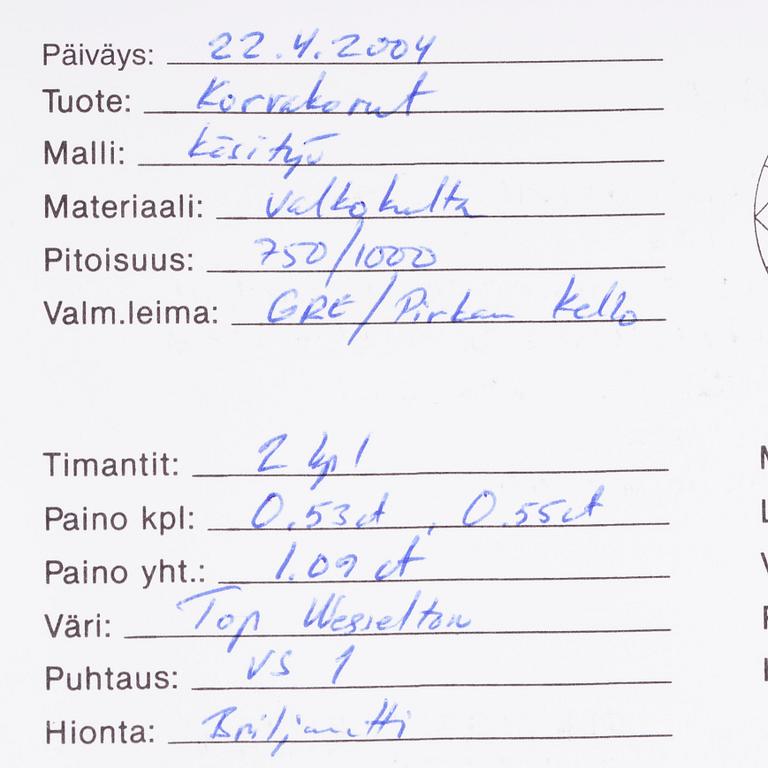 Päiväys: 22.4.2004
Tuote: Korvakorut
Malli: Käsityö
Materiaali: Valkokulta
Pitoisuus: 750/1000
Valm.leima: GRE/Pirkan Kello
Timantit: 2 kpl
Paino kpl: 0.53ct, 0.55ct
Paino yht.: 1.09 ct
Väri: Top Wesselton
Puhtaus: VS 1
Hionta: Briljantti